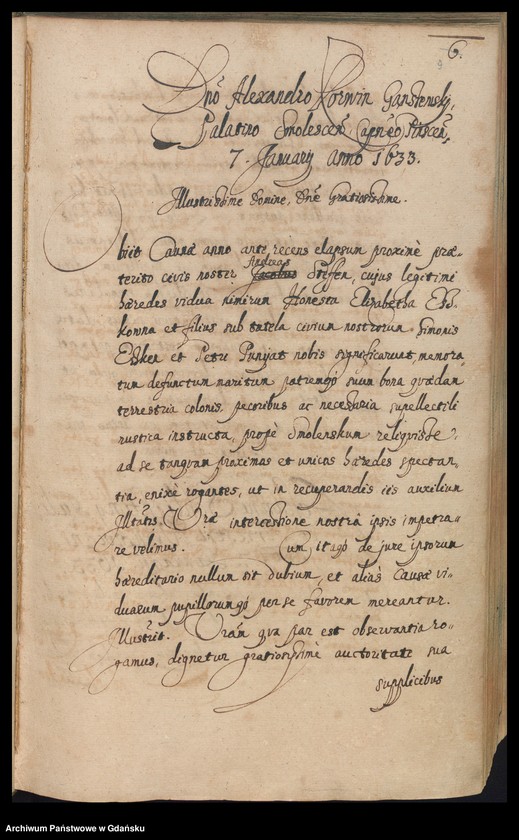 6.
9
Dno Alexandro Korwin Gansiewsky,
Palatino Smolescen. Capneo Pinscen.
7. January anno 1633.
Illustrissime Domine, Dne Gratiosissime.
Obiit Caunae anno ante recens elapsum proximè prae-
terito civis noster Andreas Jacobus Steffen, cujus legitimi
haeredes vidua nimirum Honesta Elizabetha Esk-
kowna et filius sub tutela civium nostrorum Simonis
Esken et Petri nobis significarunt, memora-
tum defunctum maritum patremq3 suum bona quaedam
terrestria colonis, pecoribus ac necessaria supellectili
rustica instructa, propè Smolenskum reliquisse,
ad se tanquam proximas et unicos haeredes spectan-
tia, enixè rogantes, ut in recuperandis iis auxilium
Illtatis. Vrae intercessione nostra ipsis impetra-
re velimus. Cum itaq3 de jure ipsorum
haereditario nullum sit dubium, et aliàs causae vi-
duarum pupillorumq3 per se favorem mereantur.
Illustrit. Vram qua par est observantia ro-
gamus, dignetur gratiosissimè auctoritate sua
supplicibus
Archiwum Państwowe w Gdańsku